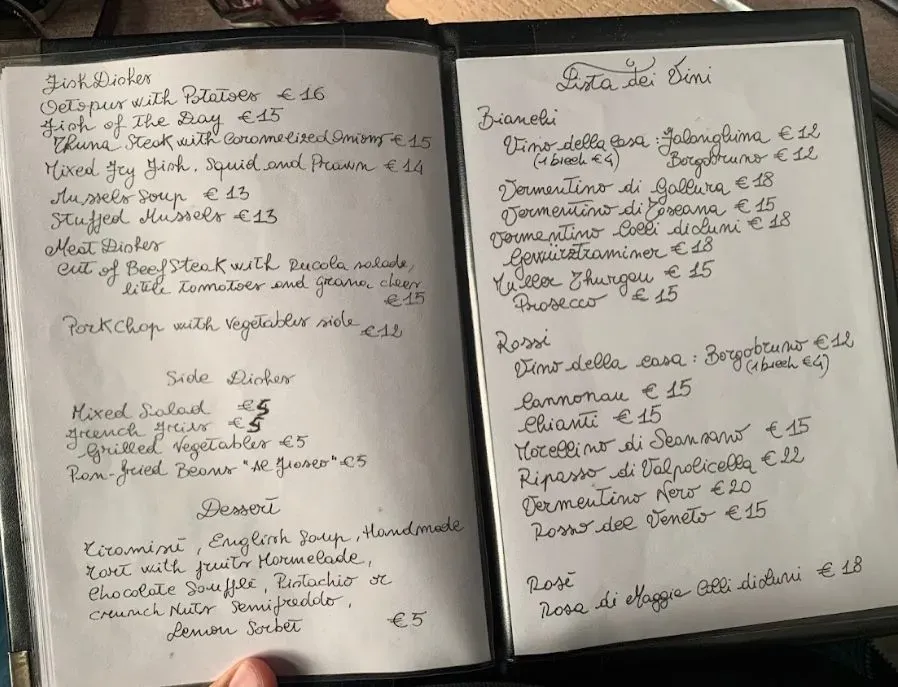 Fish Dishes
Octopus with Potatoes €16
Fish of The Day €15
Thuna Steak with Caramelized Onions €15
Mixed Fry Fish, Squid and Prawn €14
Mussels Soup €13
Stuffed Mussels €13
Meat Dishes
Cut of Beef Steak with Rucola salade,
little Tomatoes and Grana chees
€15
Pork Chop with Vegetables side €12
Side Dishes
Mixed Salad €5
French Fries €5
Grilled Vegetables €5
Pan-fried Beans "al Fiasco" €5
Dessert
Tiramisù, English Soup, Handmade
Tart with fruits Marmelade,
Chocolate Soufflè, Pistachio or
crunch Nuts Semifreddo,
Lemon Sorbet €5
Lista dei Vini
Bianchi
Vino della casa: Falanghina €12
(1 bicch €4) Borgobruno €12
Vermentino di Gallura €18
Vermentino di Toscana €15
Vermentino Colli di Luni €18
Gewürztraminer €18
Müller Thurgau €15
Prosecco €15
Rossi
Vino della casa: Borgobruno €12
(1 bicch €4)
Cannonau €15
Chianti €15
Morellino di Scansano €15
Ripasso di Valpolicella €22
Vermentino Nero €20
Rosso del Veneto €15
Rosè
Rosa di Maggio Colli di Luni €18